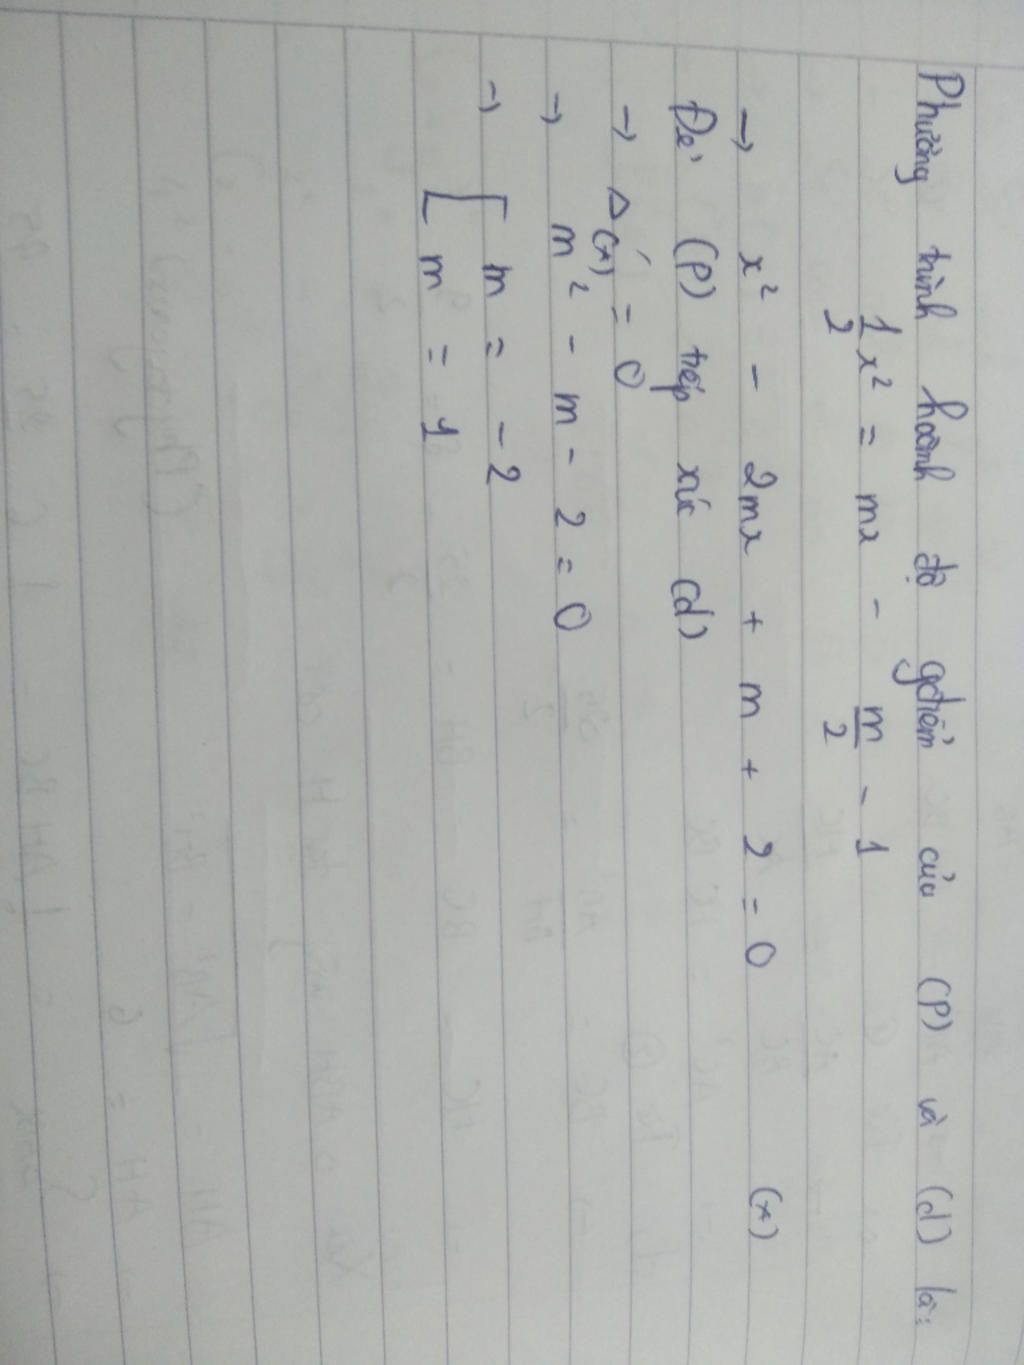 Phương trình hoành độ gđiểm của (P) và (d) là:
1/2 x² = mx - m/2 - 1
→ x² - 2mx + m + 2 = 0 (*)
Để (P) tiếp xúc (d)
→ Δ'(*) = 0
→ m² - m - 2 = 0
→ [ m = -2
[ m = 1